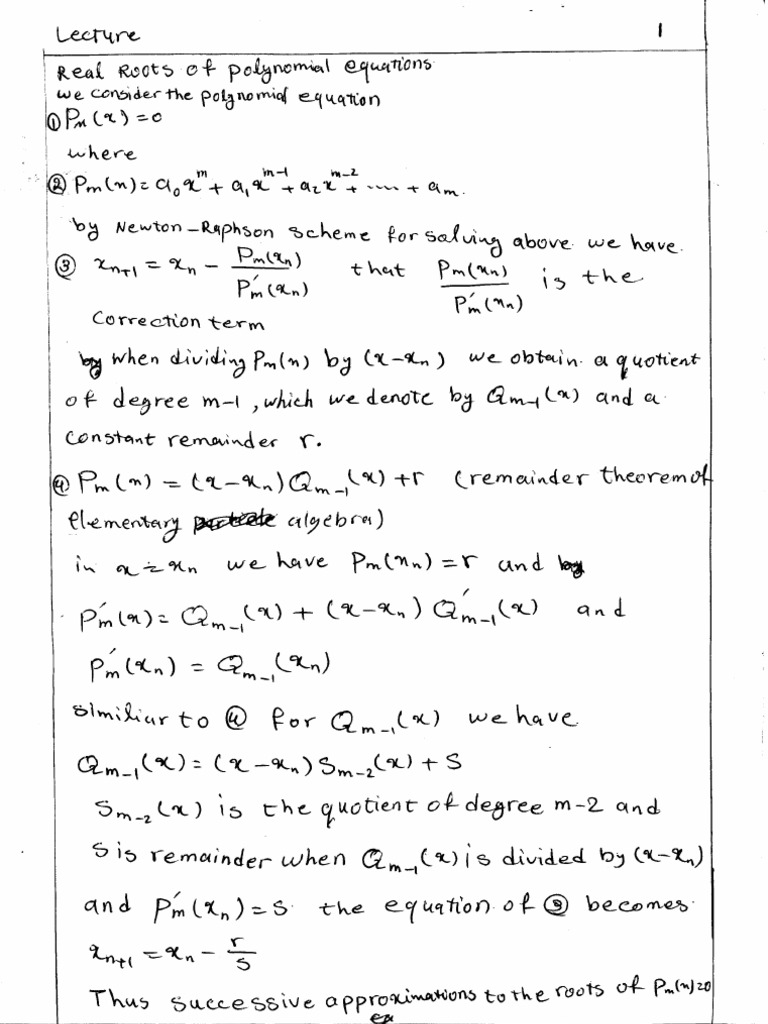 Lecture 1
Real Roots of polynomial equations
we consider the polynomial equation
① Pm(x)=0
where
② Pm(x)=a₀x^m + a₁x^(m-1) + a₂x^(m-2) + ..... + am.
by Newton-Raphson scheme for solving above we have.
③ xn+1 = xn - Pm(xn)/P′m(xn) that Pm(xn)/P′m(xn) is the
Correction term
when dividing Pm(x) by (x-xn) we obtain a quotient
of degree m-1, which we denote by Qm-1(x) and a
constant remainder r.
④ Pm(x) = (x-xn)Qm-1(x)+r (remainder theorem of
elementary algebra)
in x=xn we have Pm(xn)=r and
P′m(x)= Qm-1(x) + (x-xn) Q′m-1(x) and
P′m(xn) = Qm-1(xn)
similiar to ④ for Qm-1(x) we have
Qm-1(x)=(x-xn)Sm-2(x)+S
Sm-2(x) is the quotient of degree m-2 and
S is remainder when Qm-1(x) is divided by (x-xn)
and P′m(xn)=S the equation of ③ becomes
xn+1 = xn - r/s
Thus successive approximations to the roots of Pm(x)=0